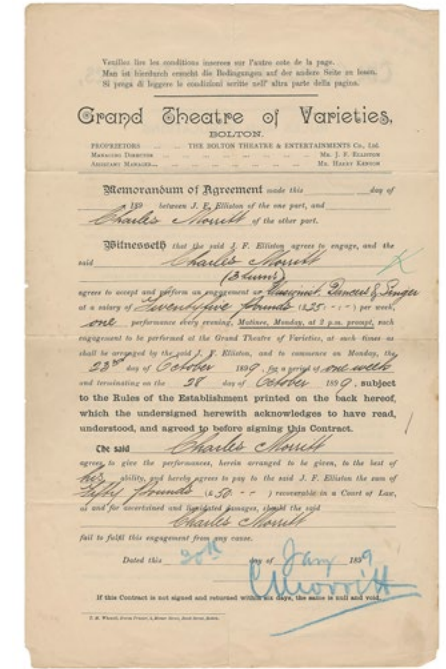 Veuillez lire les conditions inserees sur l'autre cote de la page.
Man ist hierdurch ersucht die Bedingungen auf der andere Seite zu lesen.
Si prega di leggere le condizioni scritte nell' altra parte della pagina.
Grand Theatre of Varieties,
BOLTON.
PROPRIETORS ... THE BOLTON THEATRE & ENTERTAINMENTS Co., Ltd.
MANAGING DIRECTOR ... MR. J. F. ELLISTON
ASSISTANT MANAGER ... MR. HARRY KENYON
Memorandum of Agreement made this day of
189 between J. F. Elliston of the one part, and
Charles Morritt of the other part.
Witnesseth that the said J. F. Elliston agrees to engage, and the
said Charles Morritt
(3 turns)
agrees to accept and perform an engagement as Illusionist, Dancers & Singer
at a salary of Twenty five pounds (£25 - -) per week,
one performance every evening, Matinee, Monday, at 2 p.m. prompt, such
engagement to be performed at the Grand Theatre of Varieties, at such times as
shall be arranged by the said J. F. Elliston, and to commence on Monday, the
23rd day of October 1899, for a period of one week
and terminating on the 28 day of October 1899, subject
to the Rules of the Establishment printed on the back hereof,
which the undersigned herewith acknowledges to have read,
understood, and agreed to before signing this Contract.
The said Charles Morritt
agrees to give the performances, herein arranged to be given, to the best of
his ability, and hereby agrees to pay to the said J. F. Elliston the sum of
Fifty pounds (£50 - -) recoverable in a Court of Law,
as and for ascertained and liquidated damages, should the said
Charles Morritt
fail to fulfil this engagement from any cause.
Dated this 20th day of Jany 1899
C Morritt
If this Contract is not signed and returned within six days, the same is null and void.